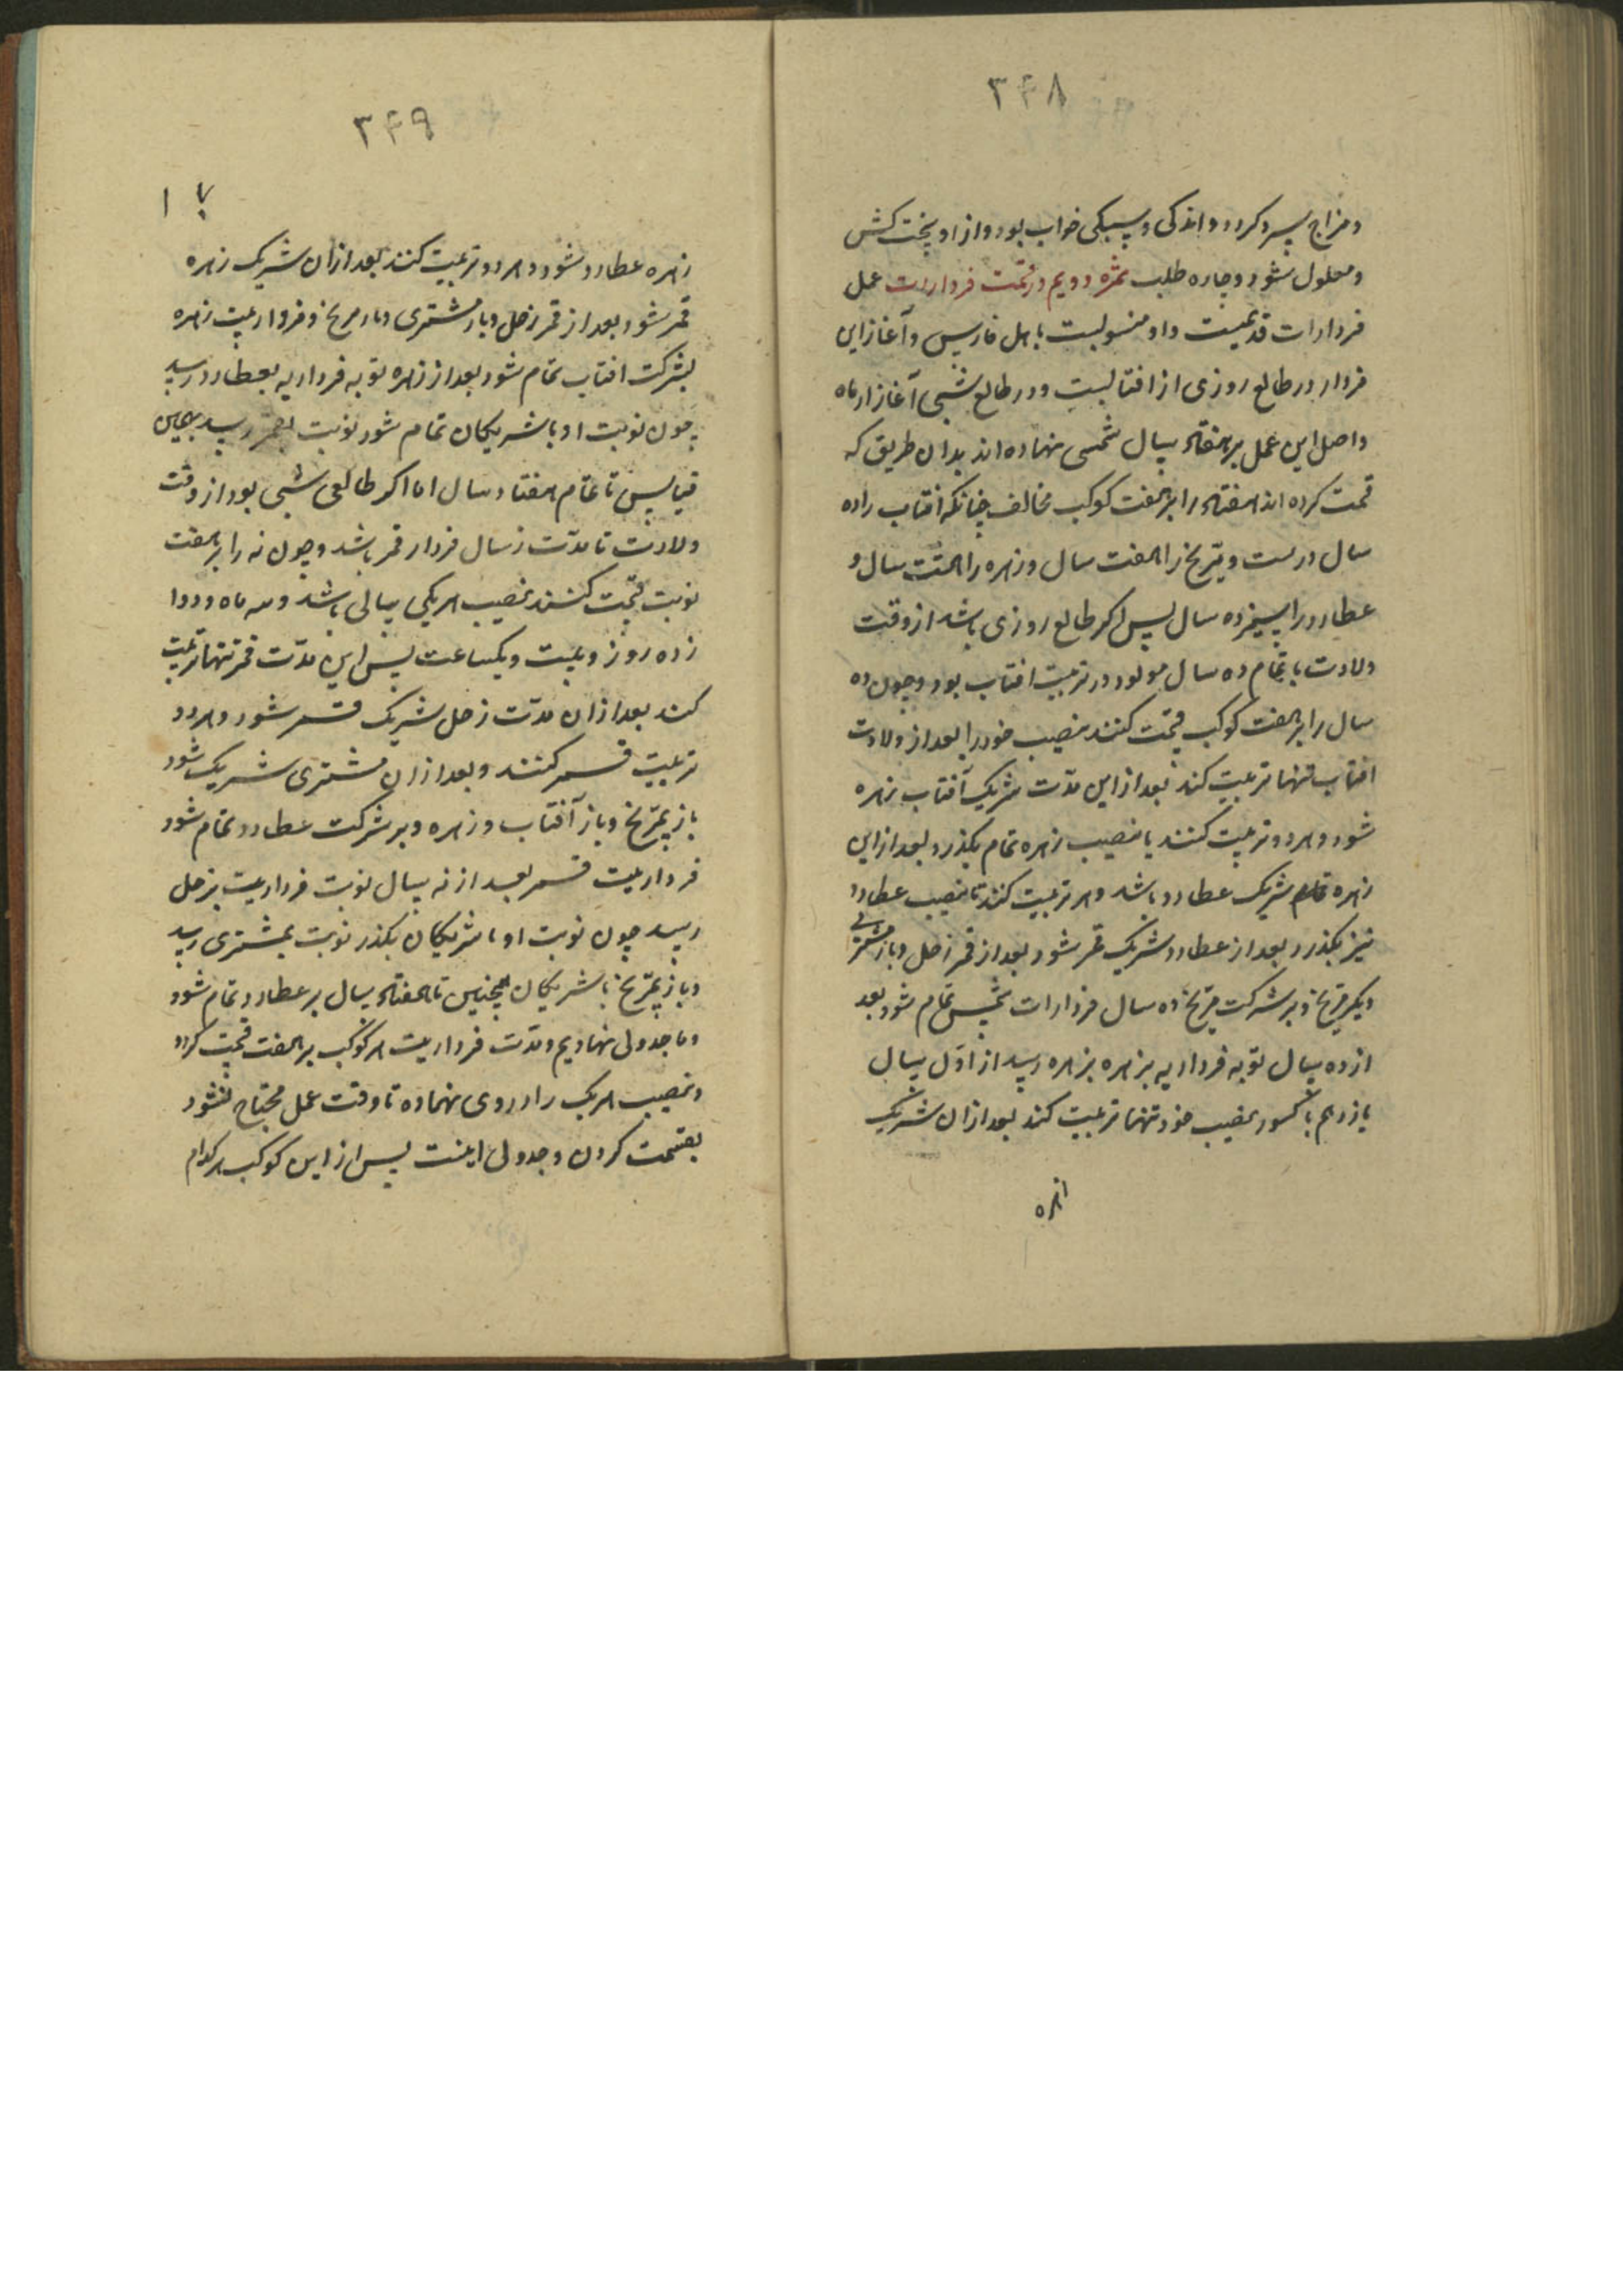 ۳۴۸
و مزاج سرد کردد و اندکی و سبکی خواب بود و از او بخت کش
و معلول شود و چاره طلب ثمره دویم در قسمت فردارات عمل
فردارات قدیمست و او منسوبست باهل فارس و آغاز این
فردار در طالع روزی از افتابست و در طالع شبی آغاز از ماه
و اصل این عمل بر هفتاد سال شمسی نهاده اند بدان طریق که
قسمت کرده اند هفتاد را بر هفت کوکب مخالف چنانکه افتاب را ده
سال درست و مریخ را هفت سال و زهره را هشت سال و
عطارد را سیزده سال پس اکر طالع روزی باشد از وقت
ولادت با تمام ده سال مولود در تربیت افتاب بود و چون ده
سال را بر هفت کوکب قسمت کنند نصیب خود را بعد از ولادت
افتاب تنها تربیت کند بعد از این مدّت شریک آفتاب زهره
شود و هر دو تربیت کنند تا نصیب زهره تمام بکذرد بعد از این
زهره شریک عطارد باشد و هر تربیت کنند تا نصیب عطارد
نیز بکذرد بعد از عطارد شریک قمر شود بعد از قمر زحل و باز مشتری
دیکر مریخ و بر شرکت مریخ ده سال فردارات شمس تمام شود بعد
از ده سال نوبه فرداریه بزهره بزهره رسد از اوّل سال
یازدهم با کسور نصیب خود تنها تربیت کند بعد از ان شریک
۳۴۹
زهره عطارد شود و هر دو تربیت کنند بعد از ان شریک زهره
قمر شود بعد از قمر زحل و باز مشتری و باز مریخ و فرداریت زهره
بشرکت افتاب تمام شود بعد از زهره نوبه فرداریه بعطارد رسد
چون نوبت او با شریکان تمام شود نوبت بقمر رسد بهمین
قیاس تا تمام هفتاد سال اما اکر طالعی شبی بود از وقت
ولادت تا مدّت نه سال فردار قمر باشد و چون نه را بر هفت
نوبت قسمت کنند نصیب هر یکی سالی باشد و سه ماه و دوا
زده روز و بیست و یکساعت پس این مدّت قمر تنها تربیت
کند بعد از ان مدّت زحل شریک قمر شود و هر دو
تربیت قمر کنند و بعد از ان مشتری شریک شود
باز مریخ و باز آفتاب و زهره و بر شرکت عطارد تمام شود
فرداریت قمر بعد از نه سال نوبت فرداریت بزحل
رسد چون نوبت او با شریکان بکذرد نوبت بمشتری رسد
و باز بمریخ با شریکان همچنین تا هفتاد سال بر عطارد تمام شود
و ما جدولی نهادیم و مدّت فرداریت هر کوکب بر هفت قسمت کرده
و نصیب هر یک را در وی نهاده تا وقت عمل محتاج نشود
بقسمت کردن و جدولی اینست پس از این کوکب هر کدام